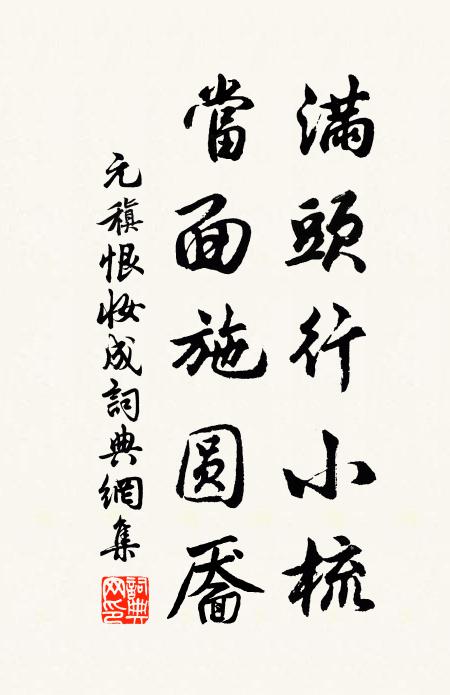 滿頭行小梳
當面施圓靨
元稹恨妝成詞典網集
詞典網印